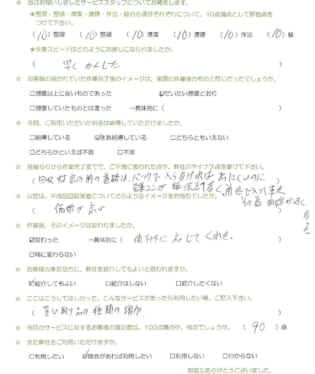 ※ 当日お伺いしましたサービススタッフについてお聞きします。
★整理・整頓・清潔・清掃・作法・躾の各項目それぞれについて、10点満点として評価点をつけて下さい。
(10)整理 (10)整頓 (10)清潔 (10)清掃 (10)作法 (10)躾
★作業スピードはどのようにお感じになられましたか。
( 早く かんじた )
※ お客様の描かれていた作業完了後のイメージは、実際の作業後のものと同じだったでしょうか。
□想像以上に良いものであった ☑だいたい想像どおり
□想像していたものとは違った →具体的に( )
※ 今回、ご利用いただいた料金は納得していただけましたか。
□納得している ☑まあ納得している □どちらともいえない
□どちらかといえば不満 □不満
※ 見積もりから作業完了までで、ご不満に思われた点や、弊社のマイナス点を挙げて下さい。
※ 以前は、不用品回収業者についてどのようなイメージをお持ちでしたか。
( 価格が高い )
※ 作業後、そのイメージは変わりましたか。
☑変わった →具体的に( に応じてくれた。 )
□特に変わらない
※ お客様の身近な方に、弊社を紹介してもよいと思われますか。
☑紹介してもよい □紹介はしない □紹介したくない
※ ここはこうしてほしかった、こんなサービスがあったら利用したい等、ご記入下さい。
( 引取り品の種類の増加 )
※ 今回のサービスに対するお客様の満足度は、100点満点中、何点でしょうか。( 90 )点
※ また弊社をご利用いただけますか。
□利用したい ☑機会があれば利用したい □利用しない □わからない
御協力ありがとうございました。